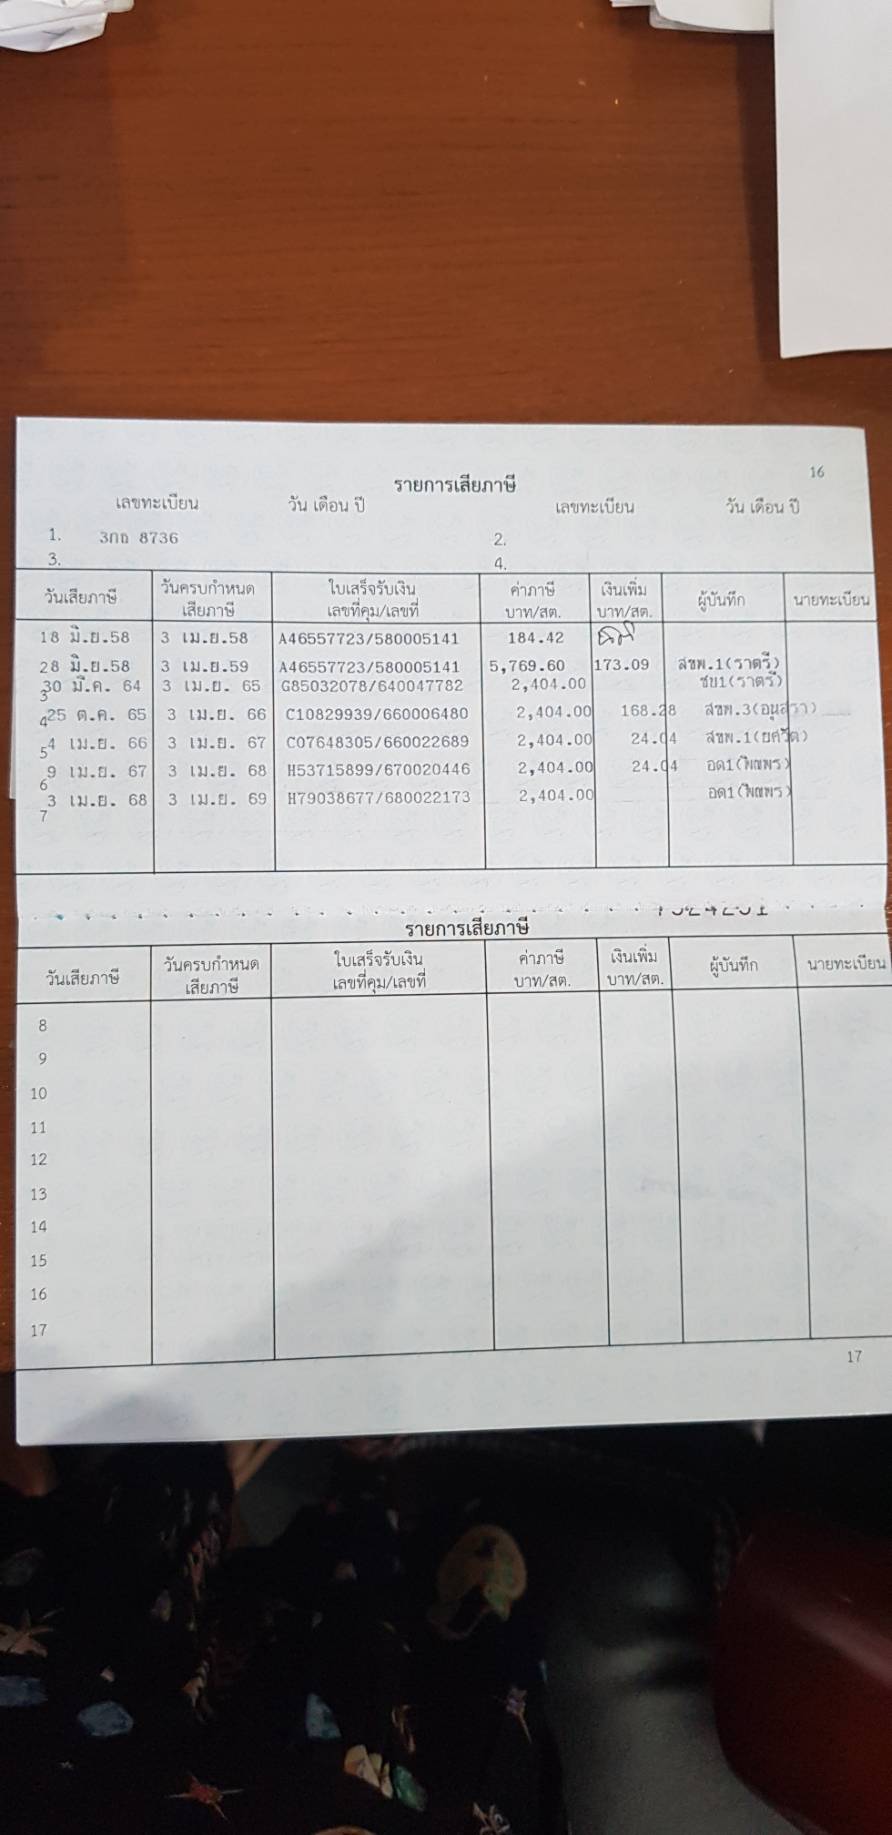 16
รายการเสียภาษี
เลขทะเบียน วัน เดือน ปี เลขทะเบียน วัน เดือน ปี
1. 3กธ 8736 2.
3. 4.
วันเสียภาษี วันครบกำหนด ใบเสร็จรับเงิน ค่าภาษี เงินเพิ่ม ผู้บันทึก นายทะเบียน
เสียภาษี เลขที่คุม/เลขที่ บาท/สต. บาท/สต.
18 มิ.ย.58 3 เม.ย.58 A46557723/580005141 184.42
28 มิ.ย.58 3 เม.ย.59 A46557723/580005141 5,769.60 173.09 สขพ.1(ราตรี)
3 30 มี.ค. 64 3 เม.ย. 65 G85032078/640047782 2,404.00 ชบ1(ราตรี)
4 25 ต.ค. 65 3 เม.ย. 66 C10829939/660006480 2,404.00 168.28 สขพ.3(อนุสรา)
5 4 เม.ย. 66 3 เม.ย. 67 C07648305/660022689 2,404.00 24.04 สขพ.1(ยศวีต)
6 9 เม.ย. 67 3 เม.ย. 68 H53715899/670020446 2,404.00 24.04 อด1(พิณพร)
7 3 เม.ย. 68 3 เม.ย. 69 H79038677/680022173 2,404.00 อด1(พิณพร)
รายการเสียภาษี
วันเสียภาษี วันครบกำหนด ใบเสร็จรับเงิน ค่าภาษี เงินเพิ่ม ผู้บันทึก นายทะเบียน
เสียภาษี เลขที่คุม/เลขที่ บาท/สต. บาท/สต.
8
9
10
11
12
13
14
15
16
17
17